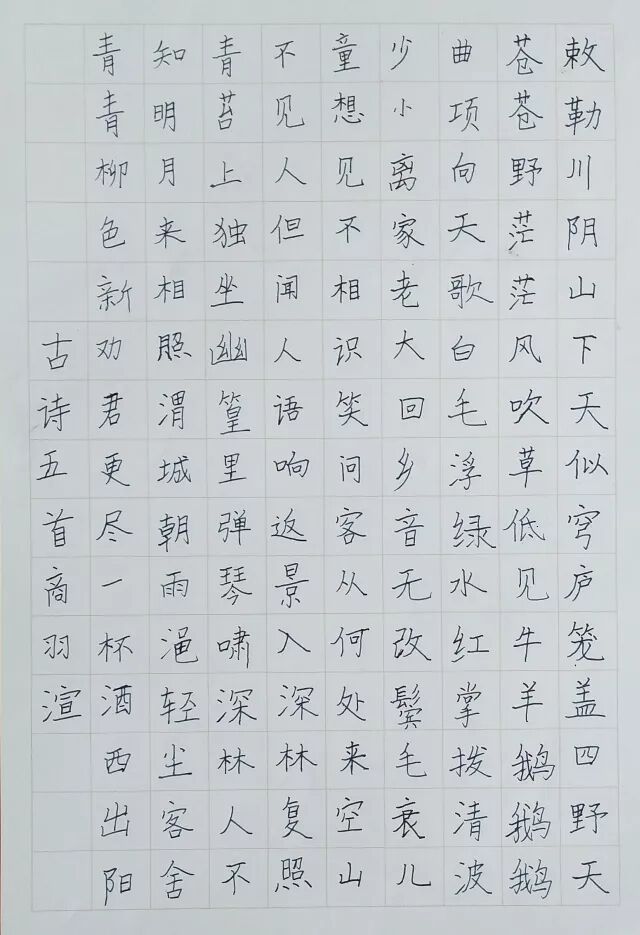 敕勒川阴山下天似穹庐笼盖四野天
苍苍野茫茫风吹草低见牛羊鹅鹅鹅
曲项向天歌白毛浮绿水红掌拨清波
少小离家老大回乡音无改鬓毛衰儿
童想见不相识笑问客从何处来空山
不见人但闻人语响返景入深林复照
青苔上独坐幽篁里弹琴啸深林人不
知明月来相照渭城朝雨浥轻尘客舍
青青柳色新劝君更尽一杯酒西出阳
古诗五首商羽渲